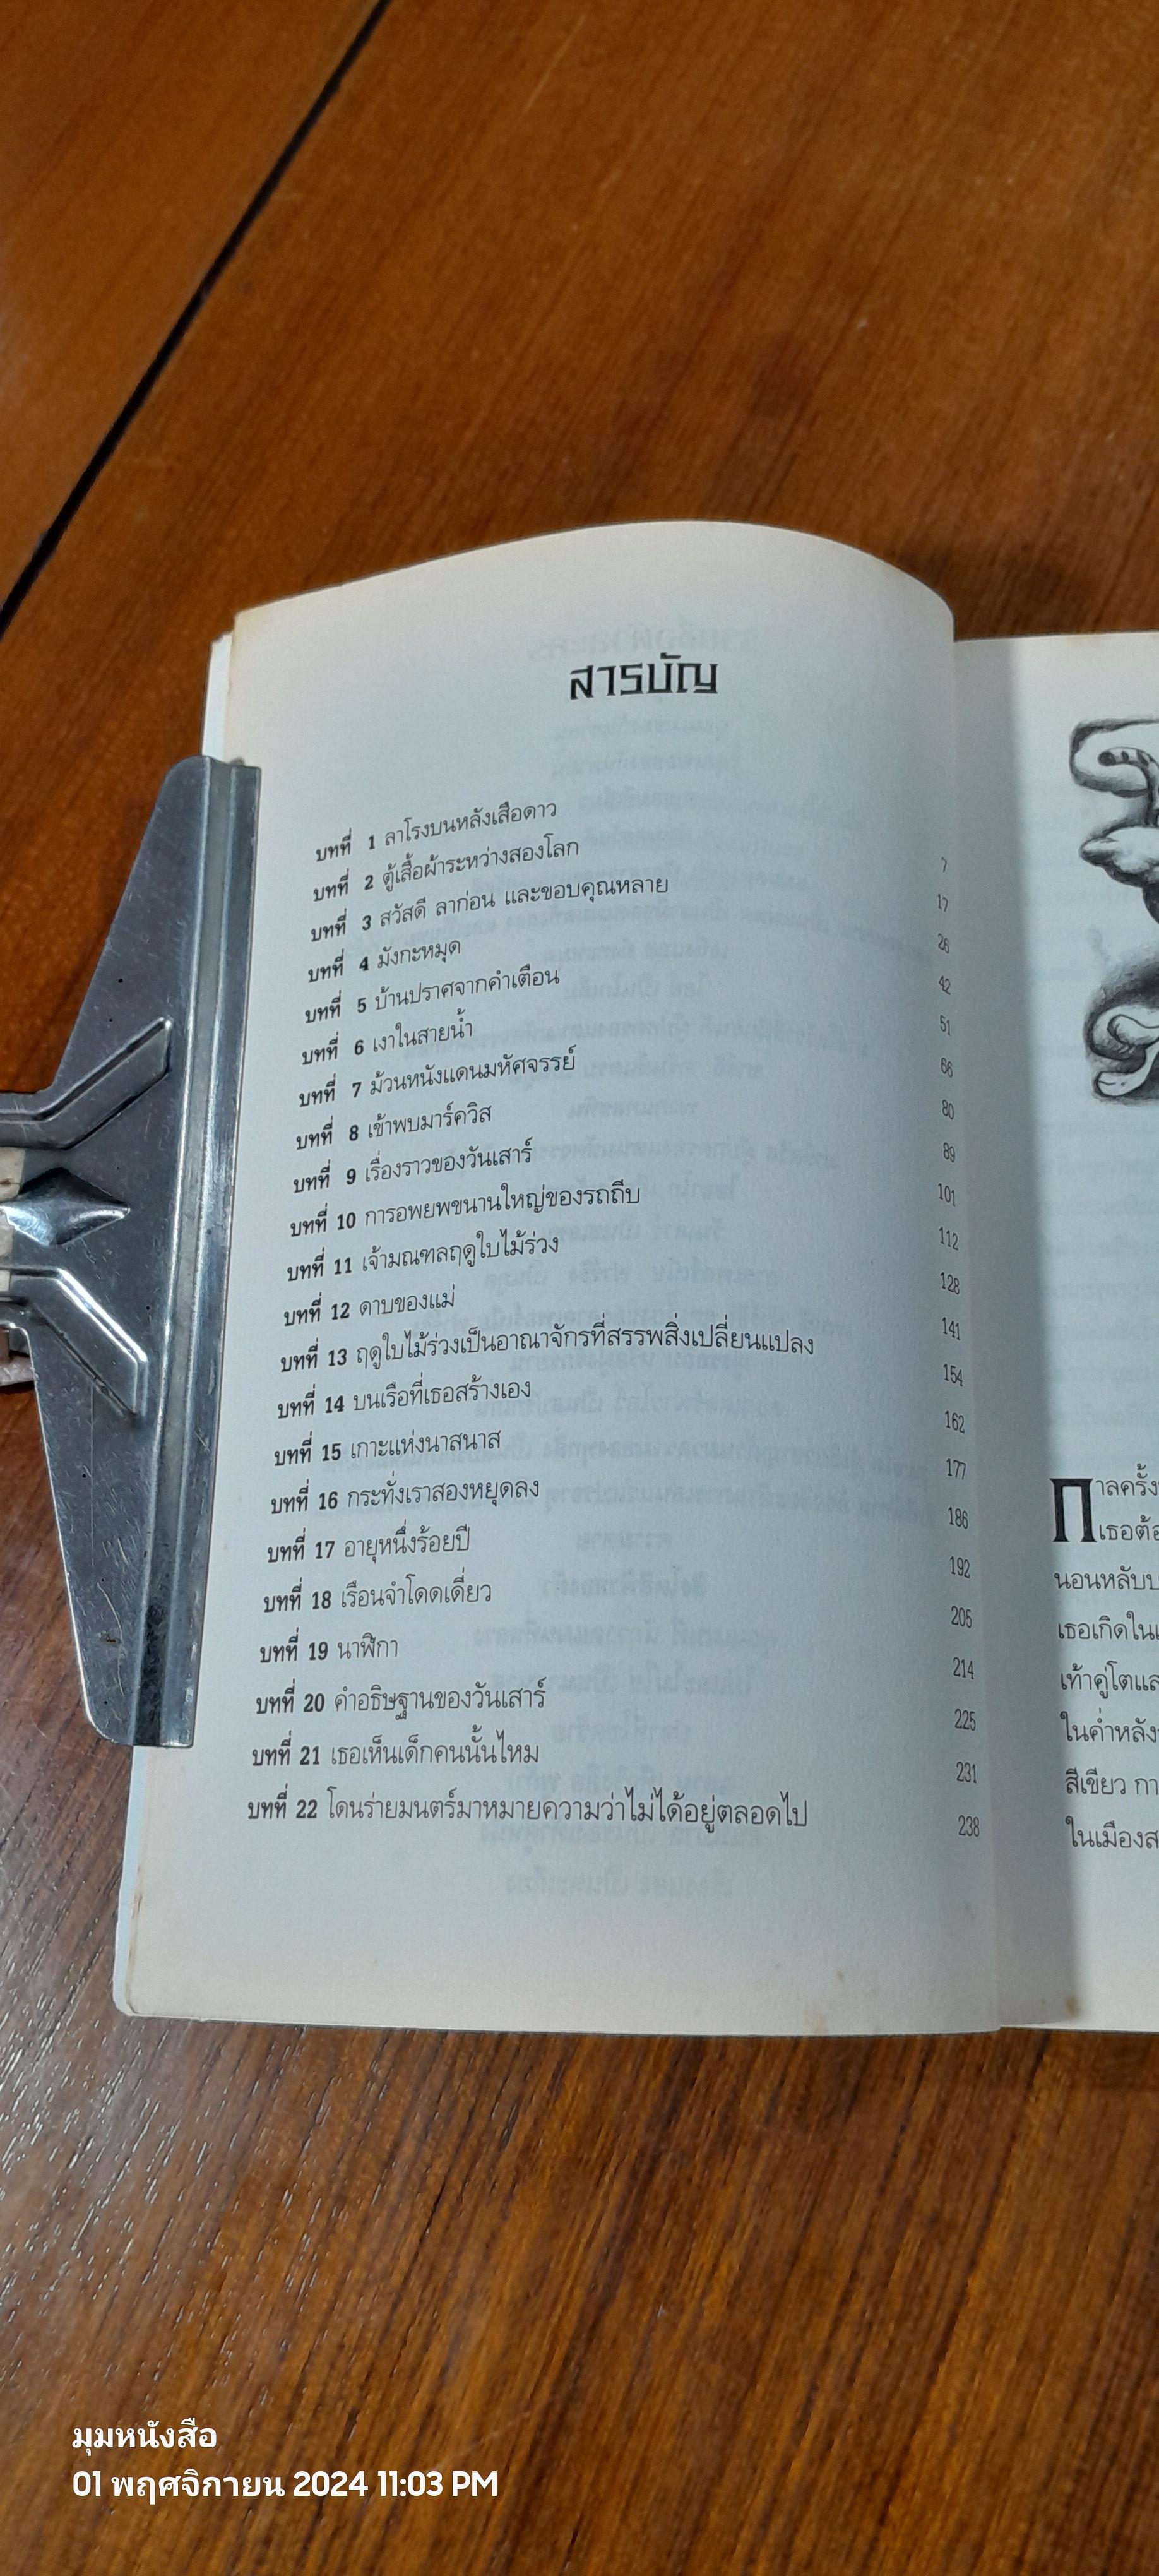 สารบัญ
บทที่ 1 ลาโรงบนหลังเสือดาว 7
บทที่ 2 ตู้เสื้อผ้าระหว่างสองโลก 17
บทที่ 3 สวัสดี ลาก่อน และขอบคุณหลาย 26
บทที่ 4 มังกะหมุด 42
บทที่ 5 บ้านปราศจากคำเตือน 51
บทที่ 6 เงาในสายน้ำ 66
บทที่ 7 ม้วนหนังแดนมหัศจรรย์ 80
บทที่ 8 เข้าพบมาร์ควิส 89
บทที่ 9 เรื่องราวของวันเสาร์ 101
บทที่ 10 การอพยพขนานใหญ่ของรถถีบ 112
บทที่ 11 เจ้ามณฑลฤดูใบไม้ร่วง 128
บทที่ 12 ดาบของแม่ 141
บทที่ 13 ฤดูใบไม้ร่วงเป็นอาณาจักรที่สรรพสิ่งเปลี่ยนแปลง 154
บทที่ 14 บนเรือที่เธอสร้างเอง 162
บทที่ 15 เกาะแห่งนาสนาส 177
บทที่ 16 กระทั่งเราสองหยุดลง 186
บทที่ 17 อายุหนึ่งร้อยปี 192
บทที่ 18 เรือนจำโดดเดี่ยว 205
บทที่ 19 นาฬิกา 214
บทที่ 20 คำอธิษฐานของวันเสาร์ 225
บทที่ 21 เธอเห็นเด็กคนนั้นไหม 231
บทที่ 22 โดนร่ายมนตร์มาหมายความว่าไม่ได้อยู่ตลอดไป 238
กาลครั้ง
เธอต้อ
นอนหลับบ
เธอเกิดใน
เท้าคู่โตแล
ในค่ำหลัง
สีเขียว กา
ในเมืองส
มุมหนังสือ
01 พฤศจิกายน 2024 11:03 PM